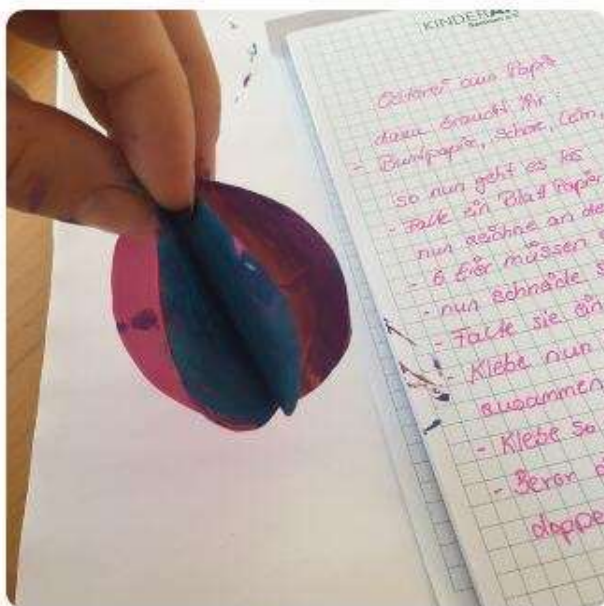 KINDERA
Osterei aus Papie
dazu braucht ihr:
- Buntpapier, Schere, Leim,
so nun geht es los
- Falte ein Blatt Papier
nun zeichne an de
- 6 Eier müssen
- nun schneide s
- Falte sie ein
- Klebe nun
zusammen
- Klebe so
- Bevor d
doppe